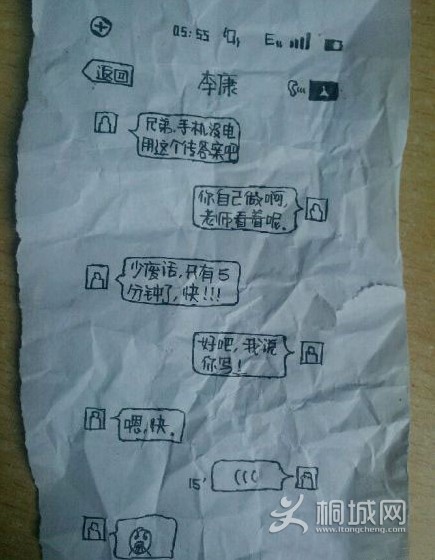 05:55 E
返回
李康
兄弟,手机没电
用这个传答案吧
你自己做啊,
老师看着呢.
少废话,只有5
分钟了,快!!!
好吧,我说
你写!
嗯,快.
15'
(((
桐城网
www.itongcheng.com